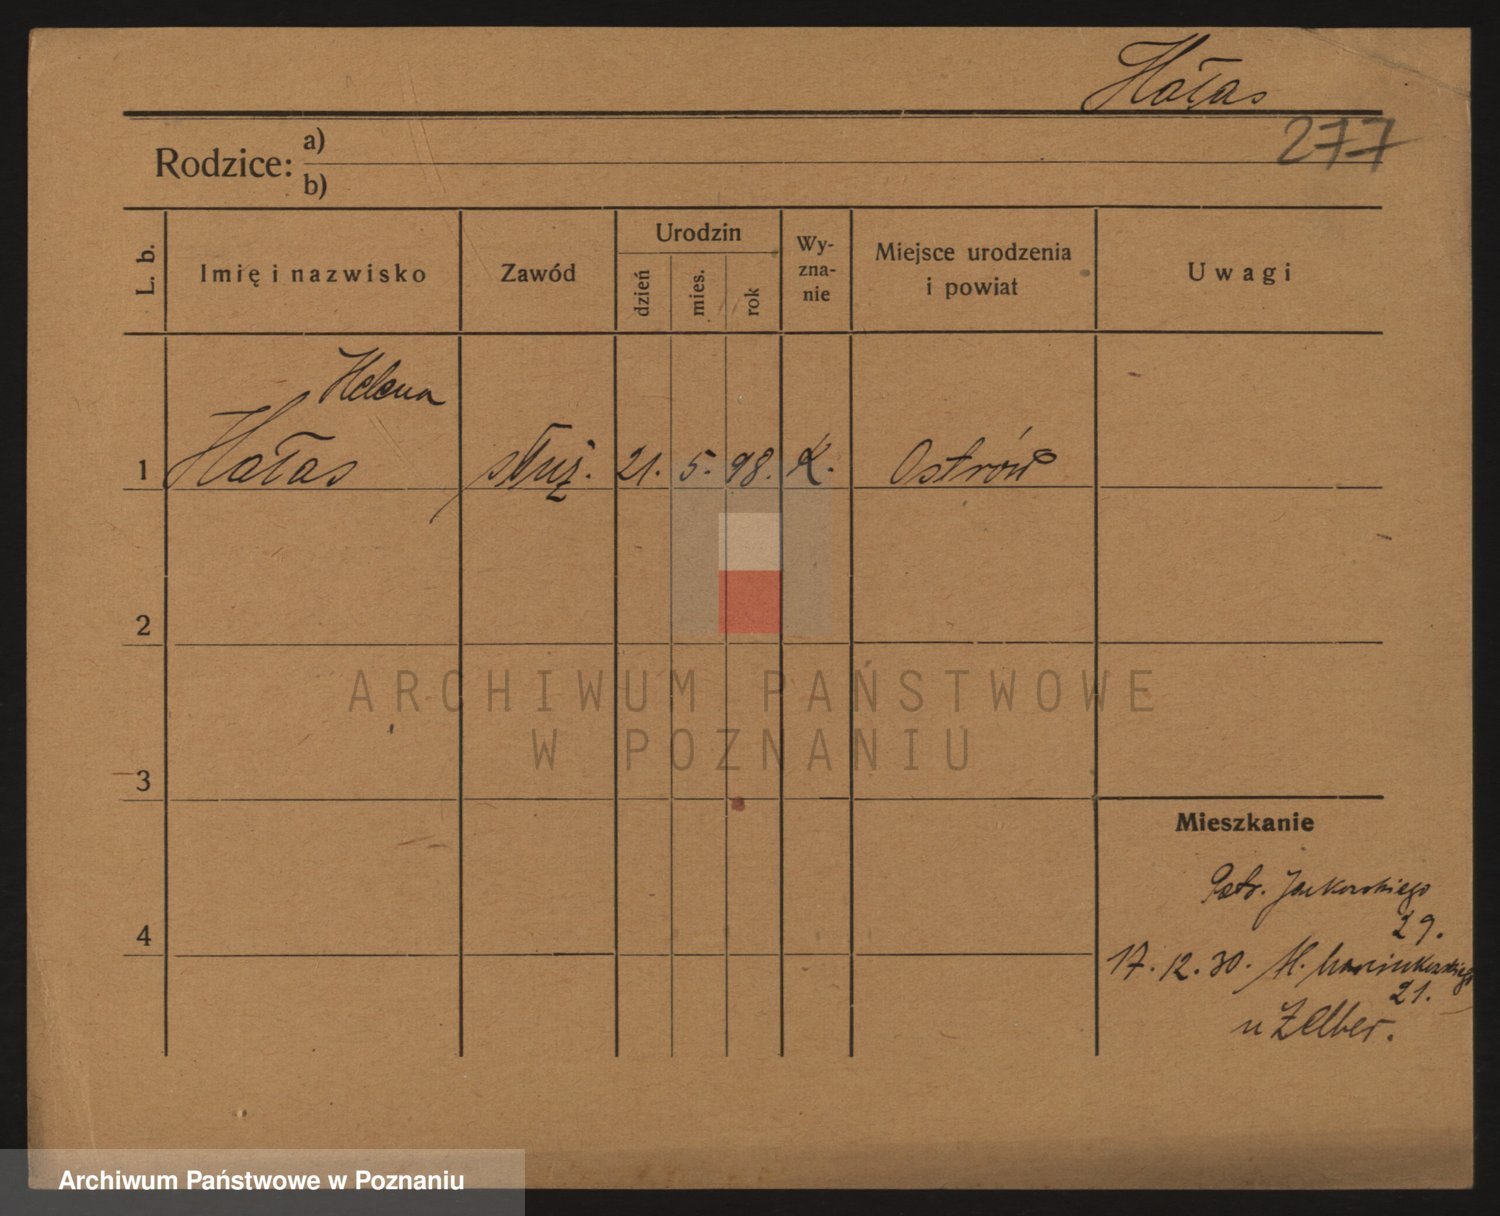 Hałas
277
Rodzice: a)
b)
L. b.
Imię i nazwisko
Zawód
Urodzin
dzień
mies.
rok
Wy-
zna-
nie
Miejsce urodzenia
i powiat
Uwagi
Helena
1 Hałas służ. 21. 5. 98. K. Ostrów
2
3
4
Mieszkanie
Patr. Jackowskiego
29.
17. 12. 30. M.
21.
u Zelber.
ARCHIWUM PAŃSTWOWE
W POZNANIU
Archiwum Państwowe w Poznaniu